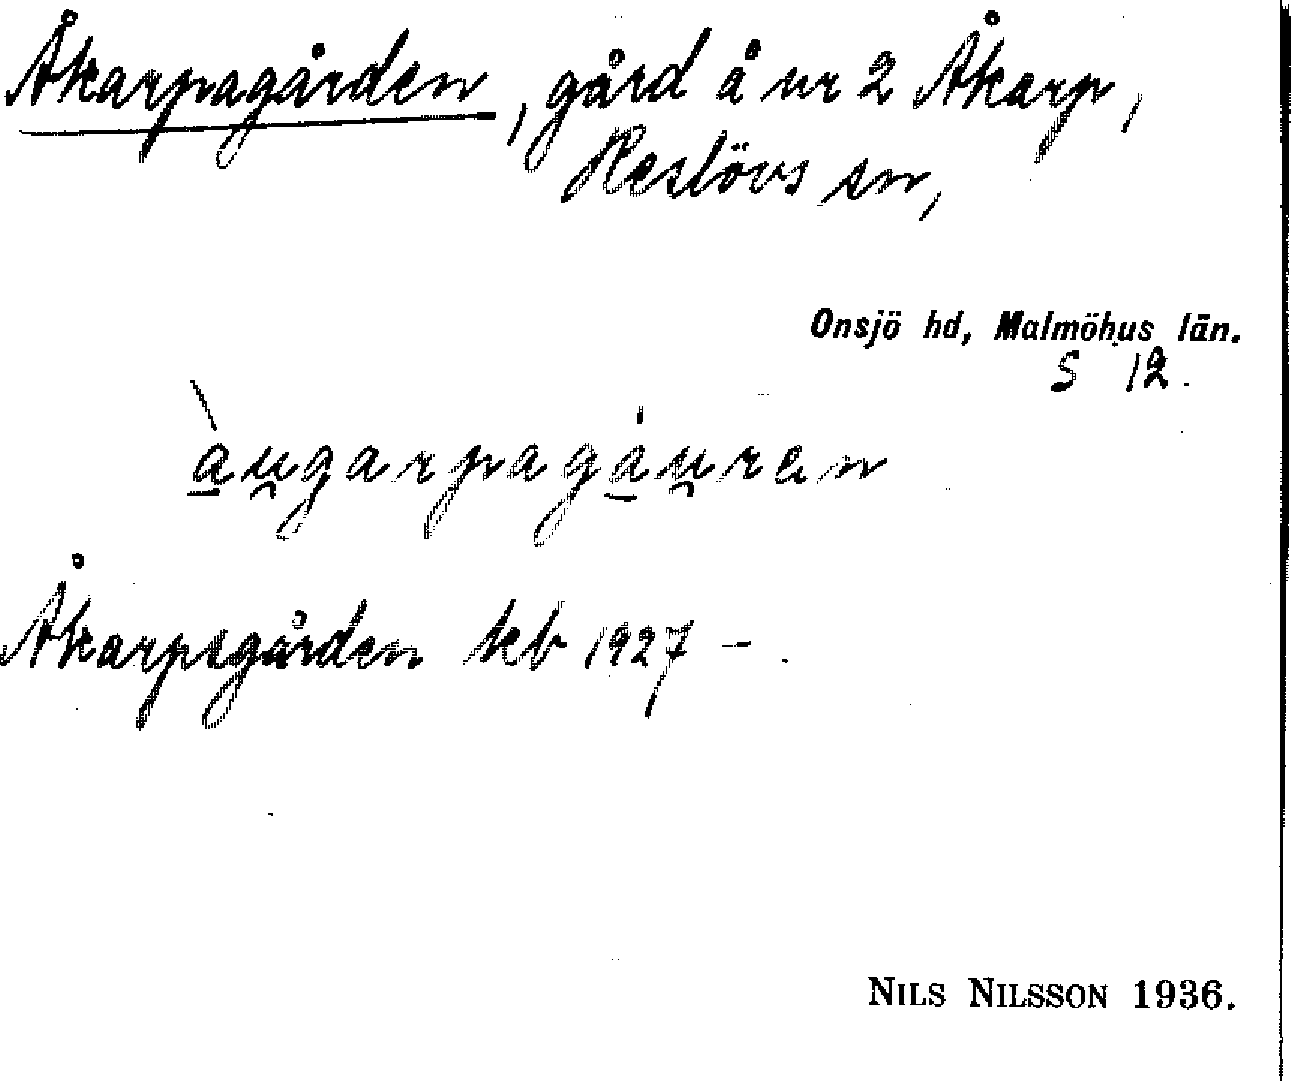 Åkarpagården, gård å nr 2 Åkarp,
Reslövs sn,
Onsjö hd, Malmöhus län.
S 12.
à̱u̯garpagá̱u̯ren
Åkarpsgården kb 1927 -.
NILS NILSSON 1936.